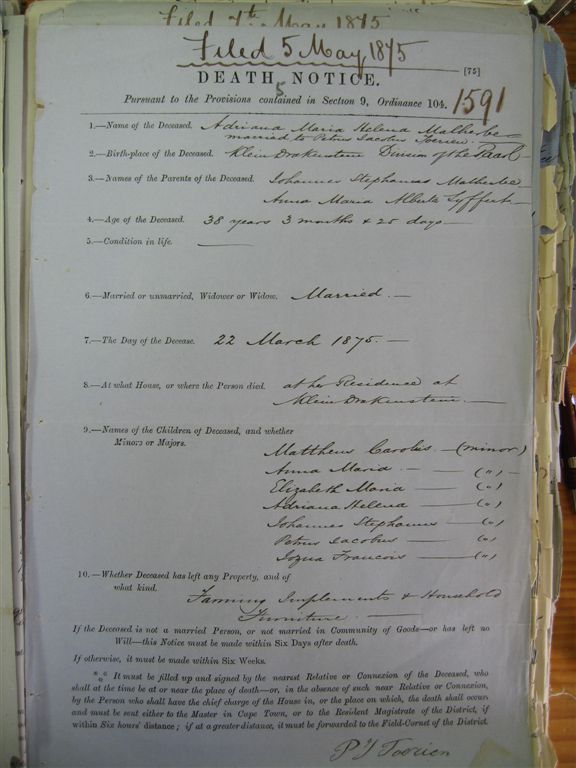 Filed 7th May 1875
Filed 5 May 1875
DEATH NOTICE.
[75]
5
Pursuant to the Provisions contained in Section 9, Ordinance 104.
1591
1.—Name of the Deceased. Adriana Maria Helena Malherbe
married to Petrus Jacobus Toerien.
2.—Birth-place of the Deceased. Klein Drakenstein Division of the Paarl
3.—Names of the Parents of the Deceased. Johannes Stephanus Malherbe
Anna Maria Alberta Syffert
4.—Age of the Deceased. 38 years 3 months & 25 days
5.—Condition in life. —
6.—Married or unmarried, Widower or Widow. Married. —
7.—The Day of the Decease. 22 March 1875. —
8.—At what House, or where the Person died. at her Residence at
Klein Drakenstein. —
9.—Names of the Children of Deceased, and whether
Minors or Majors.
Mattheus Carolus — (minor)
Anna Maria — (")
Elizabeth Maria — (")
Adriana Helena — (")
Johannes Stephanus — (")
Petrus Jacobus — (")
Jozua Francois — (")
10.—Whether Deceased has left any Property, and of
what kind.
Farming Implements & Household
Furniture. —
If the Deceased is not a married Person, or not married in Community of Goods—or has left no
Will—this Notice must be made within Six Days after death.
If otherwise, it must be made within Six Weeks.
*** It must be filled up and signed by the nearest Relative or Connexion of the Deceased, who
shall at the time be at or near the place of death—or, in the absence of such near Relative or Connexion,
by the Person who shall have the chief charge of the House in, or the place on which, the death shall occur,
and must be sent either to the Master in Cape Town, or to the Resident Magistrate of the District, if
within Six hours' distance; if at a greater distance, it must be forwarded to the Field-Cornet of the District.
P J Toerien